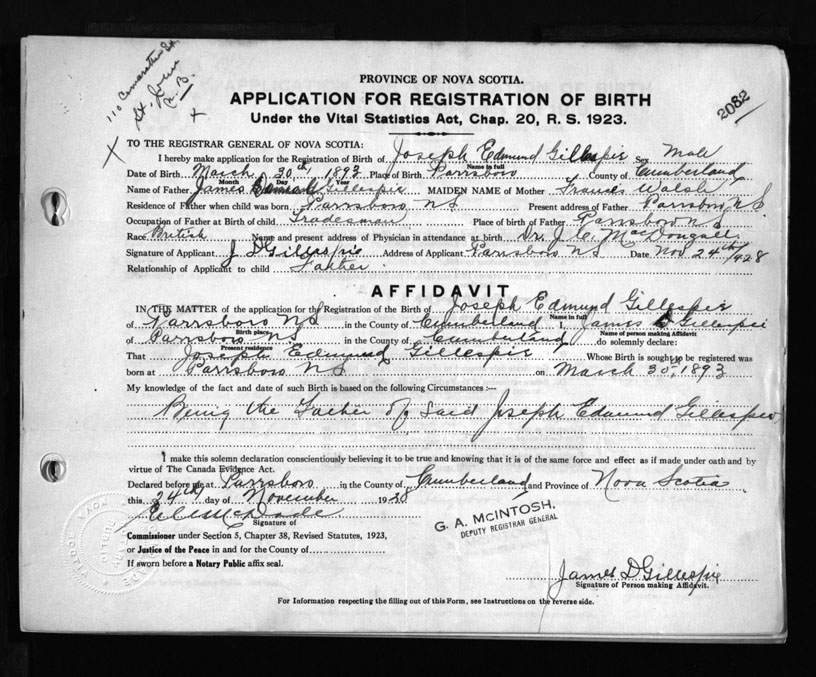 110
St. John
N. B.
2082
PROVINCE OF NOVA SCOTIA.
APPLICATION FOR REGISTRATION OF BIRTH
Under the Vital Statistics Act, Chap. 20, R. S. 1923.
TO THE REGISTRAR GENERAL OF NOVA SCOTIA:
I hereby make application for the Registration of Birth of Joseph Edmund Gillespie Sex Male
Name in full
Date of Birth March 30th 1893 Place of Birth Parrsboro County of Cumberland
Month Day Year
Name of Father James Gillespie MAIDEN NAME of Mother Frances Walsh
Residence of Father when child was born Parrsboro NS Present address of Father Parrsboro N.S.
Occupation of Father at Birth of child Tradesman Place of birth of Father Parrsboro N.S.
Race British Name and present address of Physician in attendance at birth Dr. J. C. MacDougall
Signature of Applicant J D Gillespie Address of Applicant Parrsboro NS Date Nov 24th/1928
Relationship of Applicant to child Father
AFFIDAVIT
IN THE MATTER of the application for the Registration of the Birth of Joseph Edmund Gillespie
Name in full
of Parrsboro NS in the County of Cumberland I, James D Gillespie
Birth place Name of person making Affidavit
of Parrsboro NS in the County of Cumberland do solemnly declare:
Present residence
That Joseph Edmund Gillespie Whose Birth is sought to be registered was
born at Parrsboro NS on March 30th 1893
My knowledge of the fact and date of such Birth is based on the following Circumstances :—
Being the Father of said Joseph Edmund Gillespie
I make this solemn declaration conscientiously believing it to be true and knowing that it is of the same force and effect as if made under oath and by
virtue of The Canada Evidence Act.
Declared before me at Parrsboro in the County of Cumberland and Province of Nova Scotia
this 24th day of November 1928
Signature of
Commissioner under Section 5, Chapter 38, Revised Statutes, 1923,
or Justice of the Peace in and for the County of
If sworn before a Notary Public affix seal.
G. A. McINTOSH,
DEPUTY REGISTRAR GENERAL
James D Gillespie
Signature of Person making Affidavit.
For Information respecting the filling out of this Form, see Instructions on the reverse side.